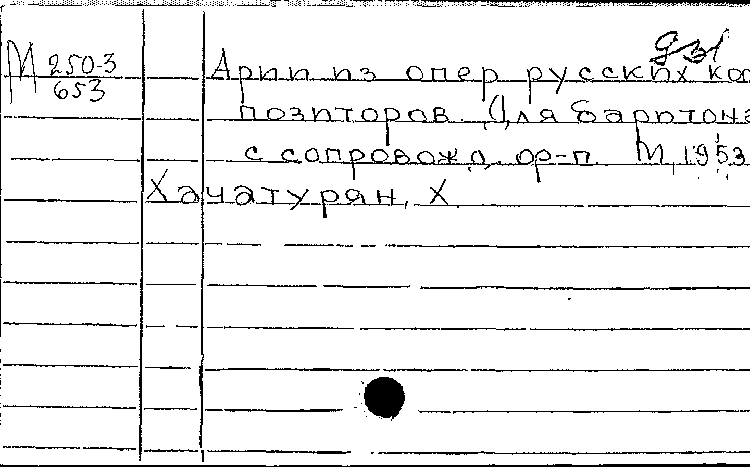 М 250-3
653
Арии из опер русских ком
позиторов. Для баритона
с сопровожд. ор-п. М, 1953
Хачатурян, Х